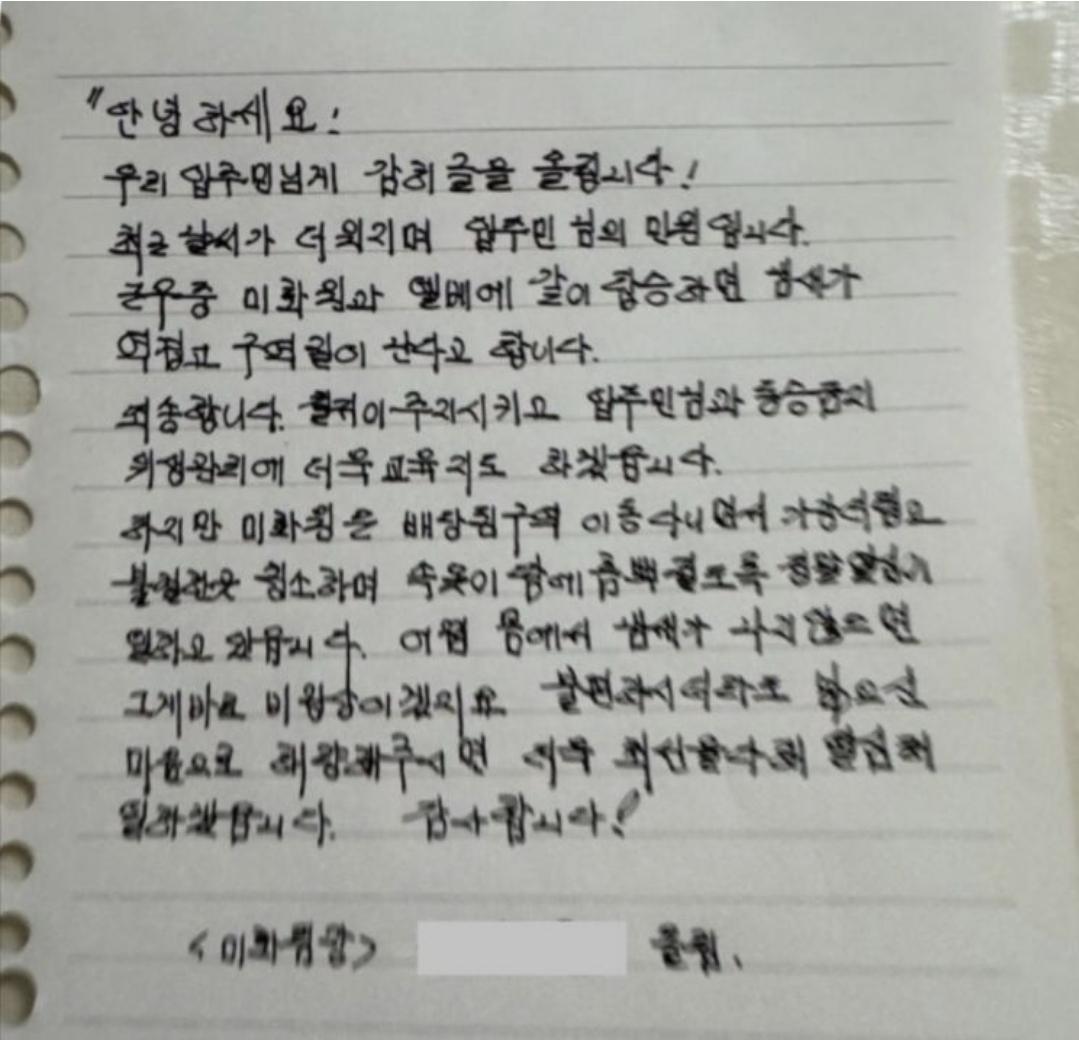 "안녕하세요!
우리 입주민님게 감히 글을 올립니다!
최근 날씨가 더워지며 입주민님의 민원입니다.
근무중 미화원과 엘베에 같이 탑승하면 땀냄새가
역겹고 구역질이 난다고 합니다.
죄송합니다. 입주민님과 동승금지
위생관리에 더욱 교육지도 하겠습니다.
하지만 미화원은 배당된구역 이동다니면서
청소하며 속옷이 땀에 흠뻑 젖도록
일하고 있습니다. 어찌 몸에서 냄새가 나지않으면
그게바로 비정상이겠지요. 불편하시더라도 넓으신
마음으로 해량해주시면 더욱 최선을다해 열심히
일하겠습니다. 감사합니다!
<미화팀장> 올림.